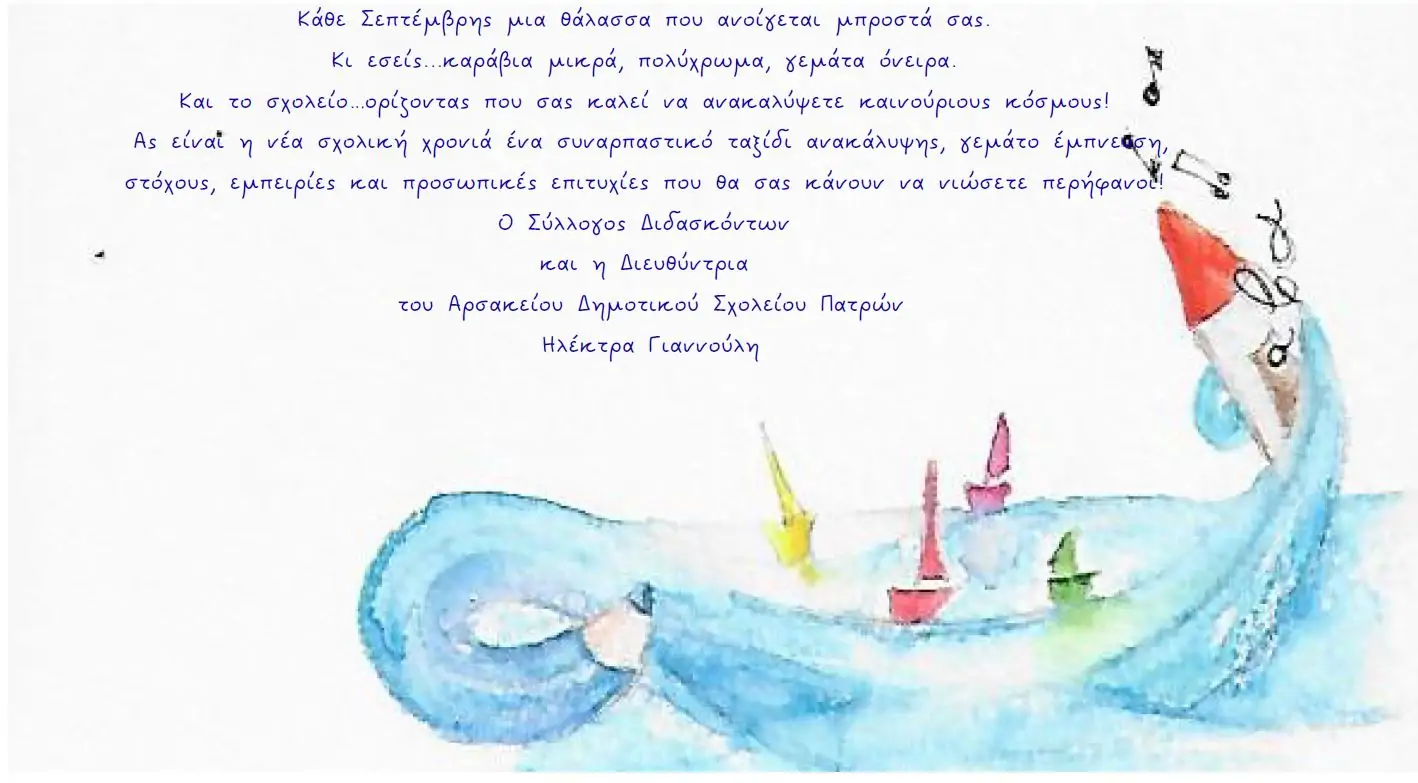 Κάθε Σεπτέμβρης μια θάλασσα που ανοίγεται μπροστά σας.
Κι εσείς...καράβια μικρά, πολύχρωμα, γεμάτα όνειρα.
Και το σχολείο...ορίζοντας που σας καλεί να ανακαλύψετε καινούριους κόσμους!
Ας είναι η νέα σχολική χρονιά ένα συναρπαστικό ταξίδι ανακάλυψης, γεμάτο έμπνευση,
στόχους, εμπειρίες και προσωπικές επιτυχίες που θα σας κάνουν να νιώσετε περήφανοι!
Ο Σύλλογος Διδασκόντων
και η Διευθύντρια
του Αρσακείου Δημοτικού Σχολείου Πατρών
Ηλέκτρα Γιαννούλη